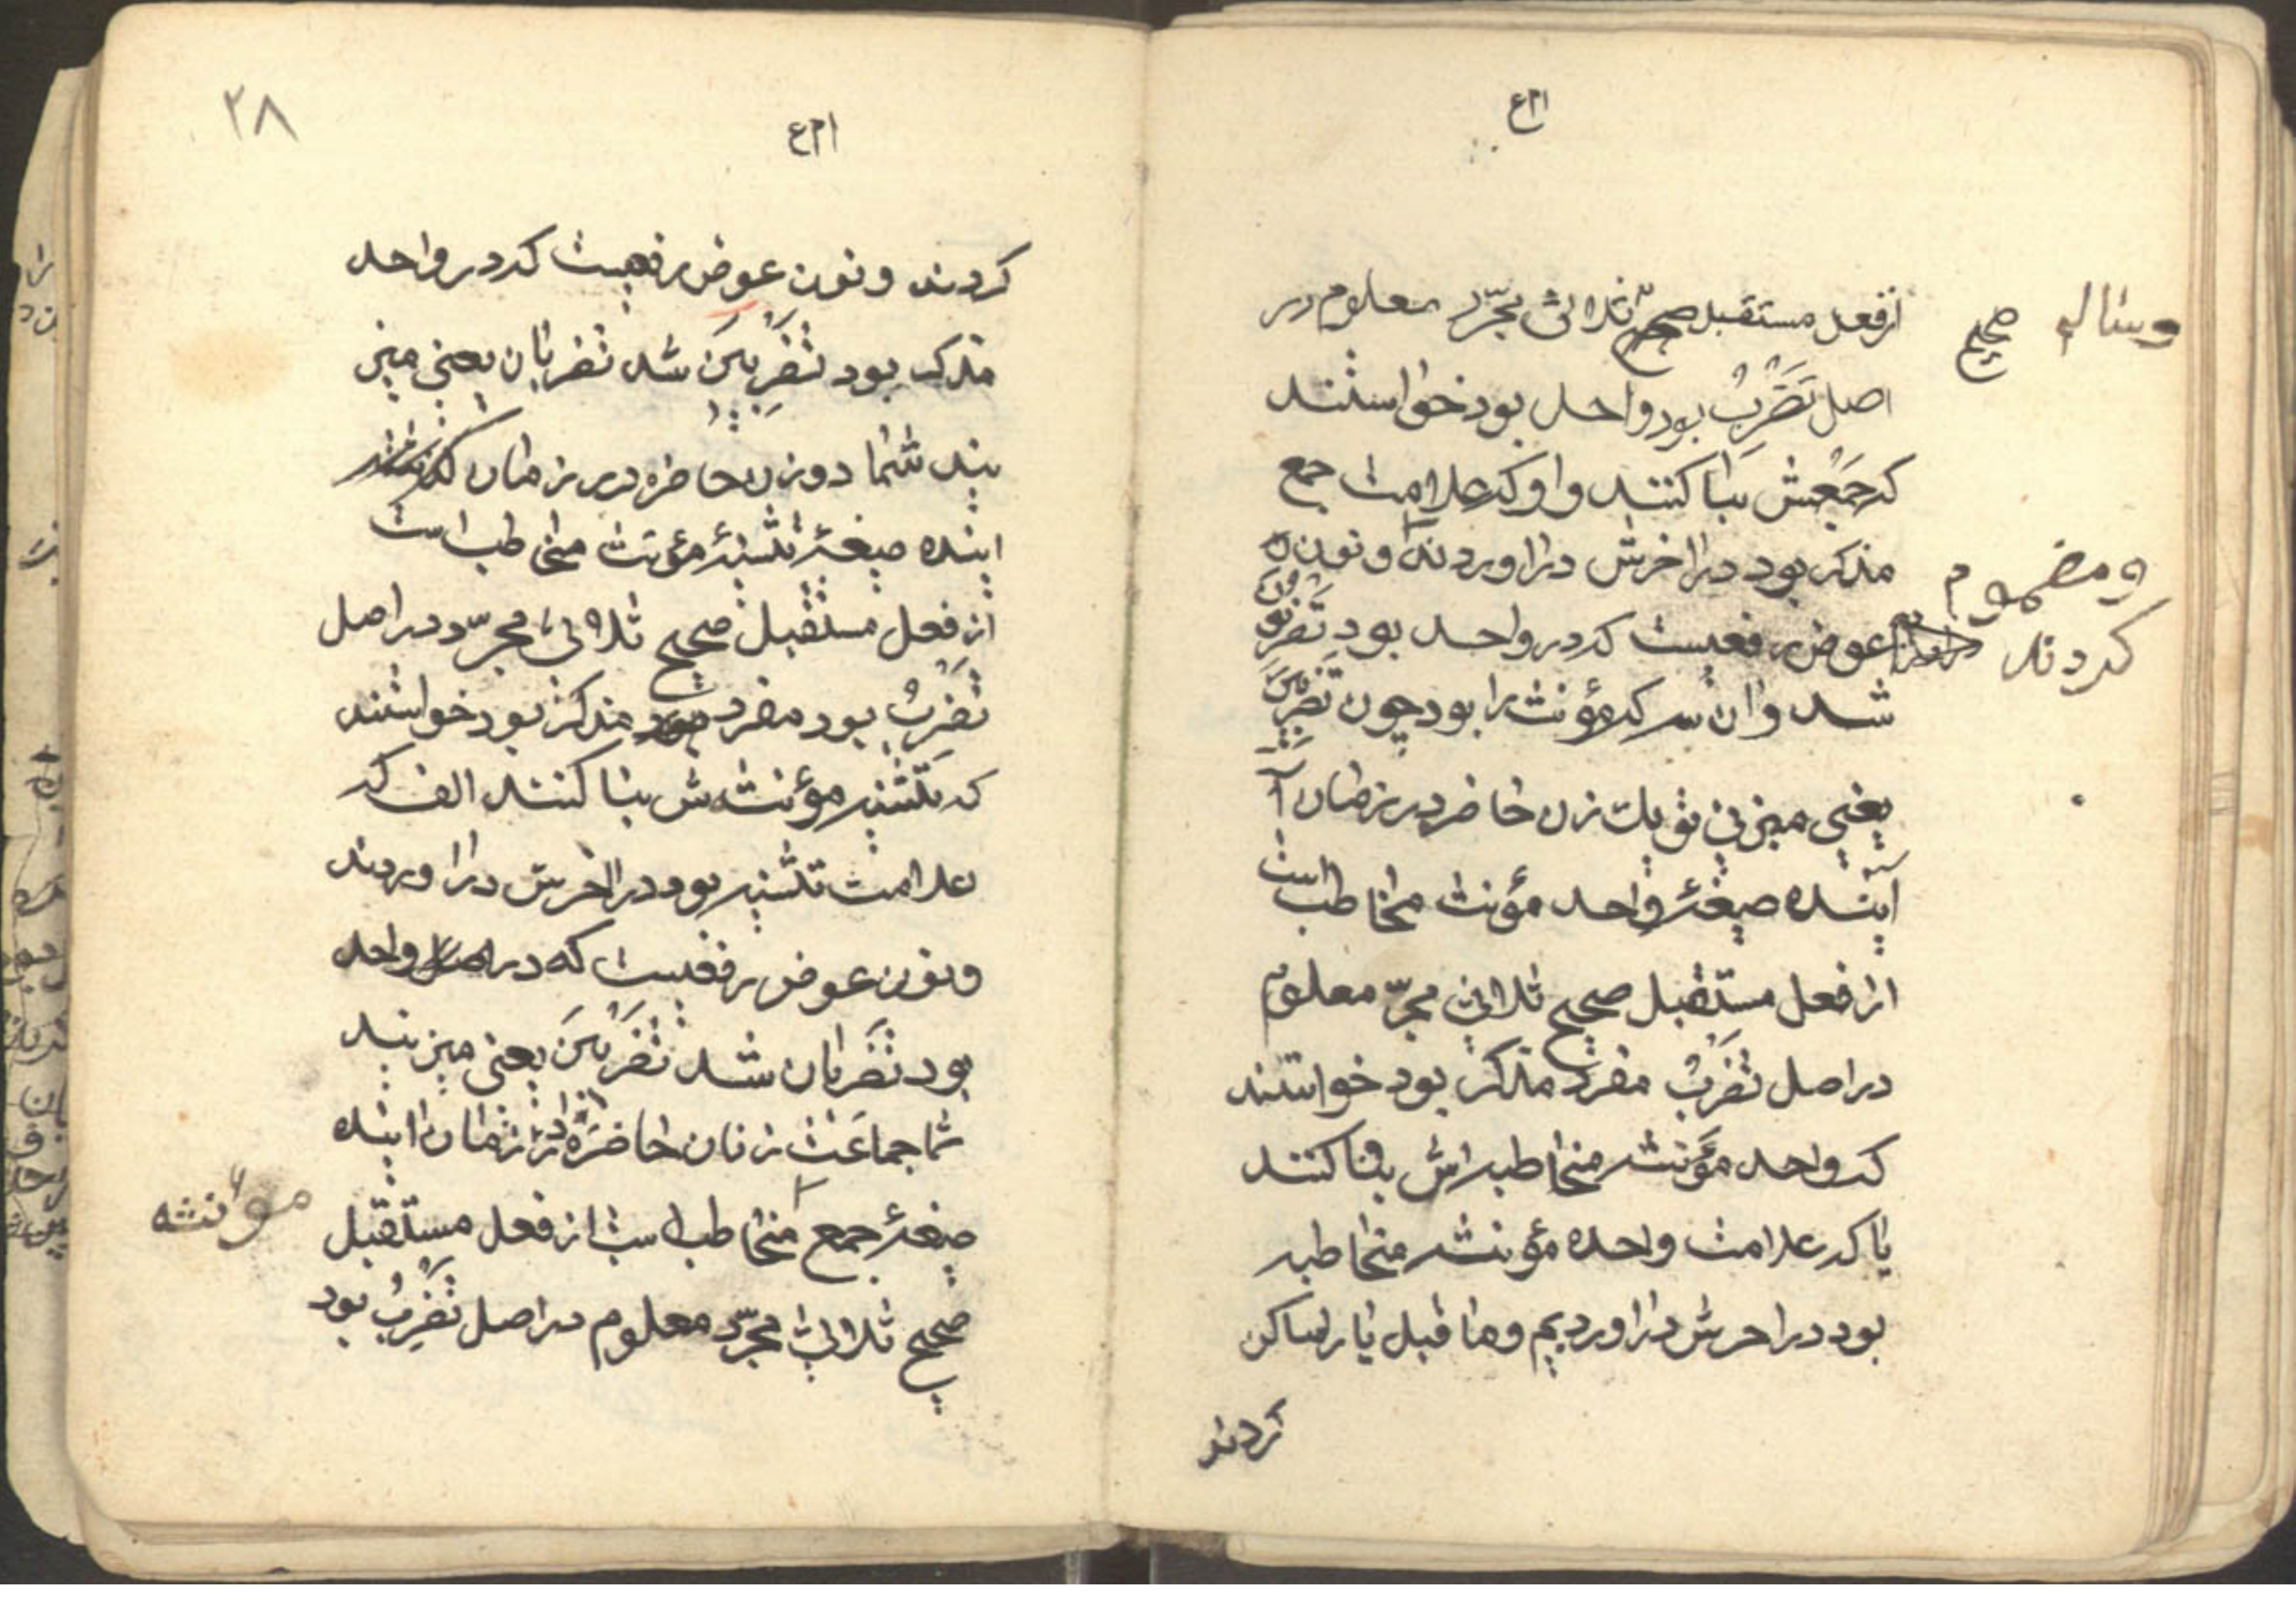 از فعل مستقبل صحیح ثلاثی مجرّد معلوم در
وسالم صحیح
اصل تَضْرِبُ بود واحد بود خواستند
که جمعش بنا کنند واو که علامت جمع
مذکر بود در اخرش دراوردند و نون
ومضموم کردند
عوض رفعیست که در واحد بود تَضْرِبُونَ
شد وان سه که مؤنث را بود چون تَضْرِبِینَ
یعنی میزنی تو یک زن حاضر در زمان آ
آینده صیغهٔ واحد مؤنث مخاطب است
از فعل مستقبل صحیح ثلاثی مجرّد معلوم
در اصل تَضْرِبُ مفرد مذکر بود خواستند
که واحد مؤنثه مخاطبه اش بنا کنند
یا که علامت واحده مؤنثه مخاطبه
بود در اخرش دراوردیم وما قبل یا را ساکن
کردند
۲۸
کردند و نون عوض رفعیست که در واحد
مذکر بود تَضْرِبِینَ شد تضربان یعنی میز
نید شما دو زن حاضره در زمان
اینده صیغهٔ تثنیهٔ مؤنث مخاطب است
از فعل مستقبل صحیح ثلاثی مجرّد در اصل
تَضْرِبُ بود مفرد مذکر بود خواستند
که تثنیه مؤنثه ش بنا کنند الف که
علامت تثنیه بود در اخرش دراوردند
ونون عوض رفعیست که در واحد
بود تَضْرِبان شد تَضْرِبْنَ یعنی میزنید
شما جماعت زنان حاضره در زمان اینده
صیغهٔ جمع مخاطب است از فعل مستقبل
موٴنثه
صحیح ثلاثی مجرّد معلوم در اصل تَضْرِبُ بود